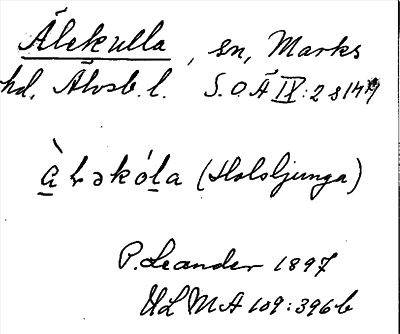 Älekulla, sn, Marks
hd, Älvsb. l. S.O.Ä IX:2 s
(Holsljunga)
P. Leander 1897
ULMA 109:396b